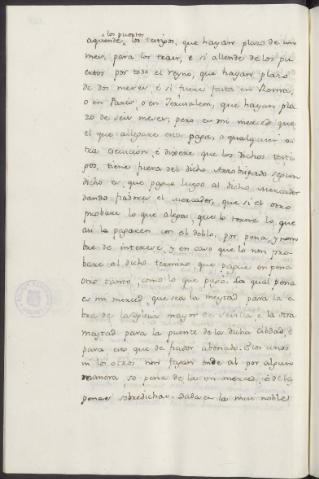 los puertos
aquende, los testigos, que hayan plazo de un
mes, para los traer, e si allende de los pu-
ertos por todo el reyno, que hayan plazo
de dos meses e si fuere fuera en Roma,
o en Paris, o en Jerusalem, que hayan pla-
zo de seis meses; pero es mi merced que
el que allegare esta paga, o qualquier o-
tra exeucion, e dixere que los dichos testi-
gos, tiene fuera del dicho Arzobispado segun
dicho es, que pague luego al dicho Mercader
dando fiadores el mercader, que si el otro
probare lo que alega, que lo torne lo que
asi la pagaren con el doblo, por pena, y nom-
bre de interese, y en caso que lo non pro-
bare al dicho termino que pague en pena
otro tanto, como lo que pago. La qual pena
es mi merced, que sea la meytad para la o-
bra de la Iglesia mayor de Sevilla, e la otra
meytad para la puente de la dicha Cibdad, e
para eso que de fiador abonado. E los unos
ni los otros non fagan ende al por alguna
manera, so pena de la mi merced, e de las
penas sobredichas. Dada en la muy noble